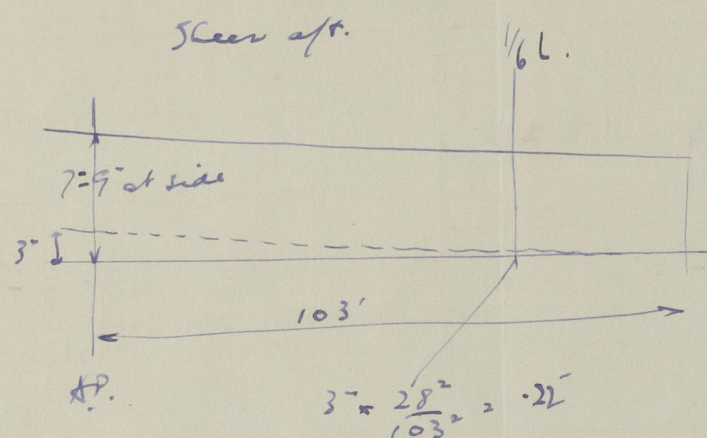 Sheer aft.
1/6 L.
7=9" at side
3"
103'
A.P.
3" × 28²/103² = .22"